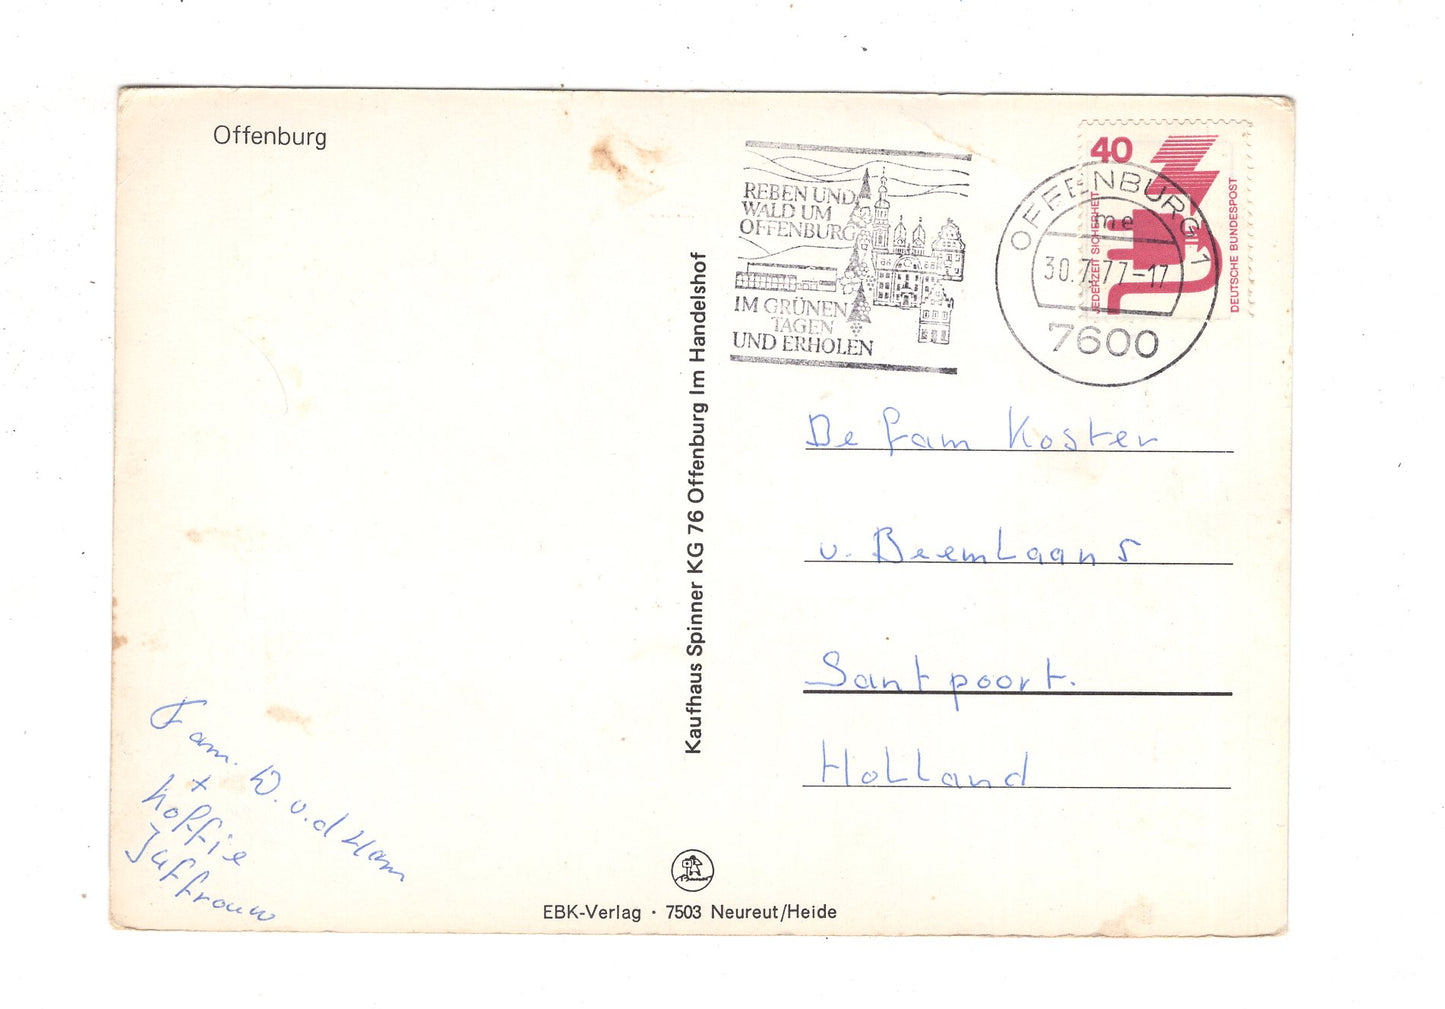 Offenburg
REBEN UND
WALD UM
OFFENBURG
IM GRÜNEN
TAGEN
UND ERHOLEN
OFFENBURG 1
me
30.7.77-17
7600
40
JEDERZEIT SICHERHEIT
DEUTSCHE BUNDESPOST
Kaufhaus Spinner KG 76 Offenburg Im Handelshof
De fam Koster
v. BeemLaan 5
Santpoort.
HoLLand
Fam. W. v. d Ham
+
hoffie
Juffrouw
EBK-Verlag · 7503 Neureut/Heide